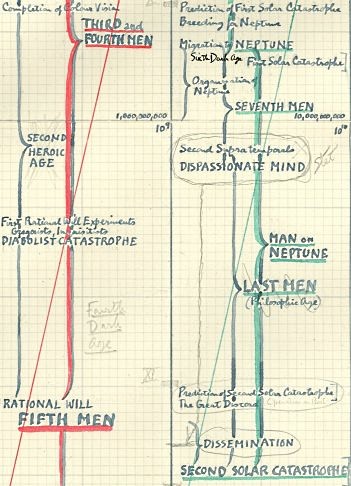 Completion of Colour Vision
THIRD and
FOURTH MEN
1,000,000,000
10⁹
SECOND
HEROIC
AGE
First Rational Will Experiments
DIABOLIST CATASTROPHE
Fourth
Dark
Age
XI
RATIONAL WILL
FIFTH MEN
Prediction of First Solar Catastrophe
Breeding for Neptune
Migration to NEPTUNE
Sixth Dark Age
First Solar Catastrophe]
Organisation of
Neptune
SEVENTH MEN
10,000,000,000
10¹⁰
Second Supratemporals
DISPASSIONATE MIND
Stet
MAN on
NEPTUNE
LAST MEN
(Philosophic Age)
Prediction of Second Solar Catastrophe]
The Great Discord
DISSEMINATION
SECOND SOLAR CATASTROPHE